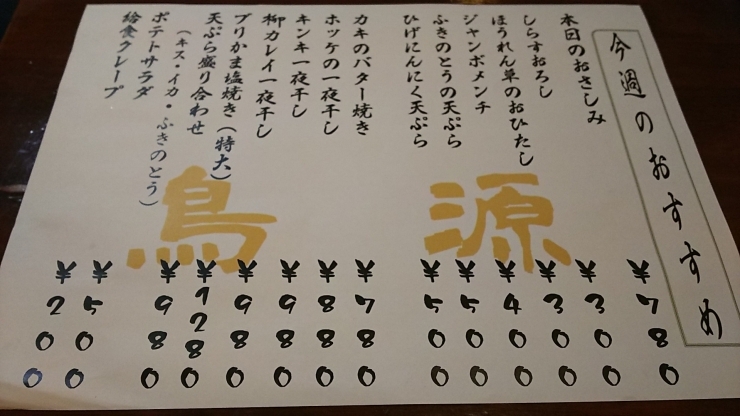 今週のおすすめ
本日のおさしみ ¥780
しらすおろし ¥300
ほうれん草のおひたし ¥300
ジャンボメンチ ¥400
ふきのとうの天ぷら ¥500
ひげにんにく天ぷら ¥500
カキのバター焼き ¥780
ホッケの一夜干し ¥880
キンキ一夜干し ¥980
柳カレイ一夜干し ¥980
ブリかま塩焼き(特大) ¥1280
天ぷら盛り合わせ ¥980
(キス・イカ・ふきのとう)
ポテトサラダ ¥500
給食クレープ ¥200
鳥源